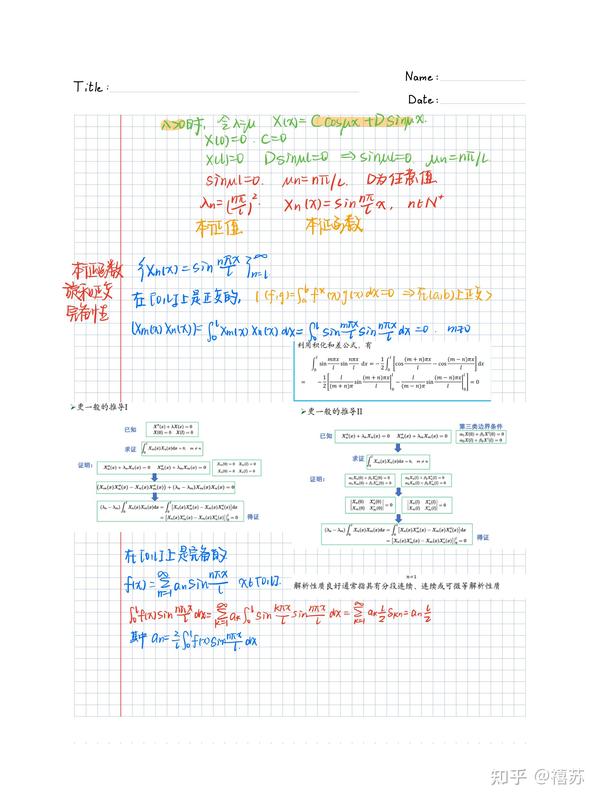 Name:
Title:
Date:
λ>0时, 令λ=μ X(x)= C cosμx + D sinμx.
X(0)=0. C=0
X(l)=0 D sinμl=0 ⇒ sinμl=0. μn=nπ/L.
sinμl=0. μn=nπ/L. D为任意值
λn=(nπ/l)². Xn(x)=sin nπ/l x, n∈N⁺
本征值 本征函数
本征函数
族和正交
完备性
{Xn(x)=sin nπx/l}∞n=1
在[0,l]上是正交的, ((f,g)=∫ₐᵇf*(x)g(x)dx=0 ⇒在(a,b)上正交>
(Xm(x) Xn(x))=∫₀ˡXm(x)Xn(x)dx=∫₀ˡ sin mπx/l sin nπx/l dx=0. m≠n
利用积化和差公式,有
∫₀ˡ sin mπx/l sin nπx/l dx = −1/2 ∫₀ˡ [cos (m+n)πx/l − cos (m−n)πx/l] dx
= −1/2 [l/(m+n)π sin (m+n)πx/l |₀ˡ − l/(m−n)π sin (m−n)πx/l |₀ˡ] = 0
➢更一般的推导I
已知 X''(x) + λX(x) = 0
X(0) = 0 X(l) = 0
求证 ∫₀ˡ Xm(x)Xn(x)dx = 0, m ≠ n
证明: X''n(x) + λnXn(x) = 0 X''m(x) + λmXm(x) = 0
Xm(0) = 0 Xm(l) = 0
Xn(0) = 0 Xn(l) = 0
[Xm(x)X''n(x) − Xn(x)X''m(x)] + (λn − λm)Xm(x)Xn(x) = 0
(λn − λm) ∫₀ˡ Xn(x)Xm(x)dx = ∫₀ˡ [Xn(x)X''m(x) − Xm(x)X''n(x)]dx
= [Xn(x)X'm(x) − Xm(x)X'n(x)]|₀ˡ = 0
得证
➢更一般的推导II
第三类边界条件
已知 X''n(x) + λnXn(x) = 0 X''m(x) + λmXm(x) = 0
α₁X(0) + β₁X'(0) = 0
α₂X(l) + β₂X'(l) = 0
求证 ∫₀ˡ Xm(x)Xn(x)dx = 0, m ≠ n
证明: α₁Xn(0) + β₁X'n(0) = 0
α₁Xm(0) + β₁X'm(0) = 0
α₂Xn(l) + β₂X'n(l) = 0
α₂Xm(l) + β₂X'm(l) = 0
|Xn(0) X'n(0)|
|Xm(0) X'm(0)| = 0
|Xn(l) X'n(l)|
|Xm(l) X'm(l)| = 0
(λn − λm) ∫₀ˡ Xn(x)Xm(x)dx = ∫₀ˡ [Xn(x)X''m(x) − Xm(x)X''n(x)]dx
= [Xn(x)X'm(x) − Xm(x)X'n(x)]|₀ˡ = 0
得证
在[0,l]上是完备的
f(x)=∑∞n=1 an sin nπx/l x∈[0,l].
n=1
解析性质良好通常指具有分段连续、连续或可微等解析性质
∫₀ˡf(x)sin nπx/l dx=∑∞k=1 ak ∫₀ˡ sin kπx/l sin nπx/l dx=∑∞k=1 ak l/2 δkn=an l/2
其中 an=2/l∫₀ˡf(x)sin nπx/l dx
知乎 @禧苏